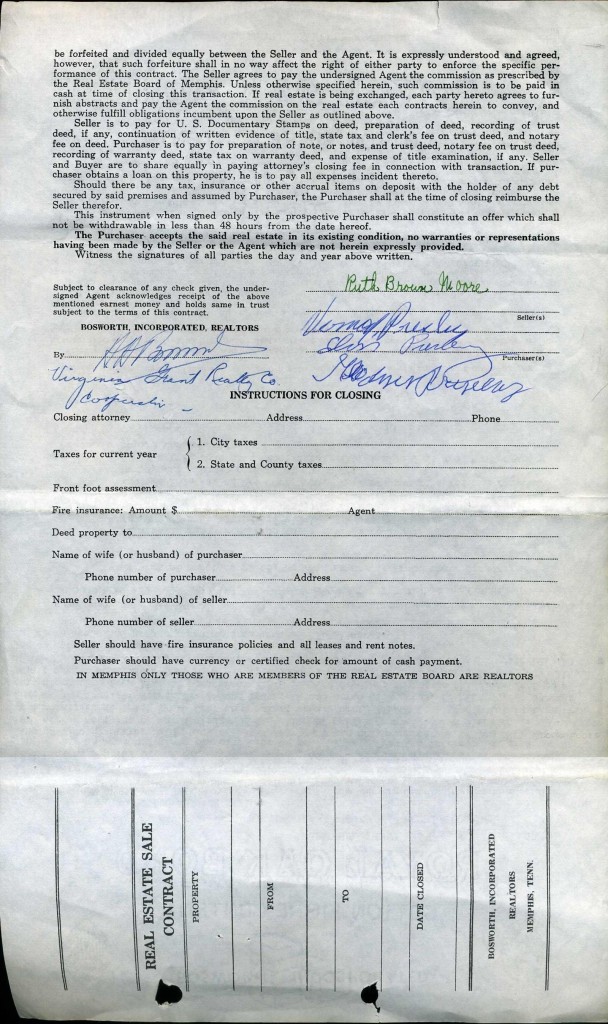 be forfeited and divided equally between the Seller and the Agent. It is expressly understood and agreed,
however, that such forfeiture shall in no way affect the right of either party to enforce the specific per-
formance of this contract. The Seller agrees to pay the undersigned Agent the commission as prescribed by
the Real Estate Board of Memphis. Unless otherwise specified herein, such commission is to be paid in
cash at time of closing this transaction. If real estate is being exchanged, each party hereto agrees to fur-
nish abstracts and pay the Agent the commission on the real estate each contracts herein to convey, and
otherwise fulfill obligations incumbent upon the Seller as outlined above.
Seller is to pay for U. S. Documentary Stamps on deed, preparation of deed, recording of trust
deed, if any, continuation of written evidence of title, state tax and clerk's fee on trust deed, and notary
fee on deed. Purchaser is to pay for preparation of note, or notes, and trust deed, notary fee on trust deed,
recording of warranty deed, state tax on warranty deed, and expense of title examination, if any. Seller
and Buyer are to share equally in paying attorney's closing fee in connection with transaction. If pur-
chaser obtains a loan on this property, he is to pay all expenses incident thereto.
Should there be any tax, insurance or other accrual items on deposit with the holder of any debt
secured by said premises and assumed by Purchaser, the Purchaser shall at the time of closing reimburse the
Seller therefor.
This instrument when signed only by the prospective Purchaser shall constitute an offer which shall
not be withdrawable in less than 48 hours from the date hereof.
The Purchaser accepts the said real estate in its existing condition, no warranties or representations
having been made by the Seller or the Agent which are not herein expressly provided.
Witness the signatures of all parties the day and year above written.
Ruth Brown Moore
Seller(s)
Vernon Presley
Elvis Presley
Purchaser(s)
Gladys Presley
Subject to clearance of any check given, the under-
signed Agent acknowledges receipt of the above
mentioned earnest money and holds same in trust
subject to the terms of this contract.
BOSWORTH, INCORPORATED, REALTORS
By
Virginia Grant Realty Co.
INSTRUCTIONS FOR CLOSING
Closing attorney Address Phone
Taxes for current year
1. City taxes
2. State and County taxes
Front foot assessment
Fire insurance: Amount $ Agent
Deed property to
Name of wife (or husband) of purchaser
Phone number of purchaser Address
Name of wife (or husband) of seller
Phone number of seller Address
Seller should have fire insurance policies and all leases and rent notes.
Purchaser should have currency or certified check for amount of cash payment.
IN MEMPHIS ONLY THOSE WHO ARE MEMBERS OF THE REAL ESTATE BOARD ARE REALTORS
REAL ESTATE SALE
CONTRACT
PROPERTY
FROM
TO
DATE CLOSED
BOSWORTH, INCORPORATED
REALTORS
MEMPHIS, TENN.